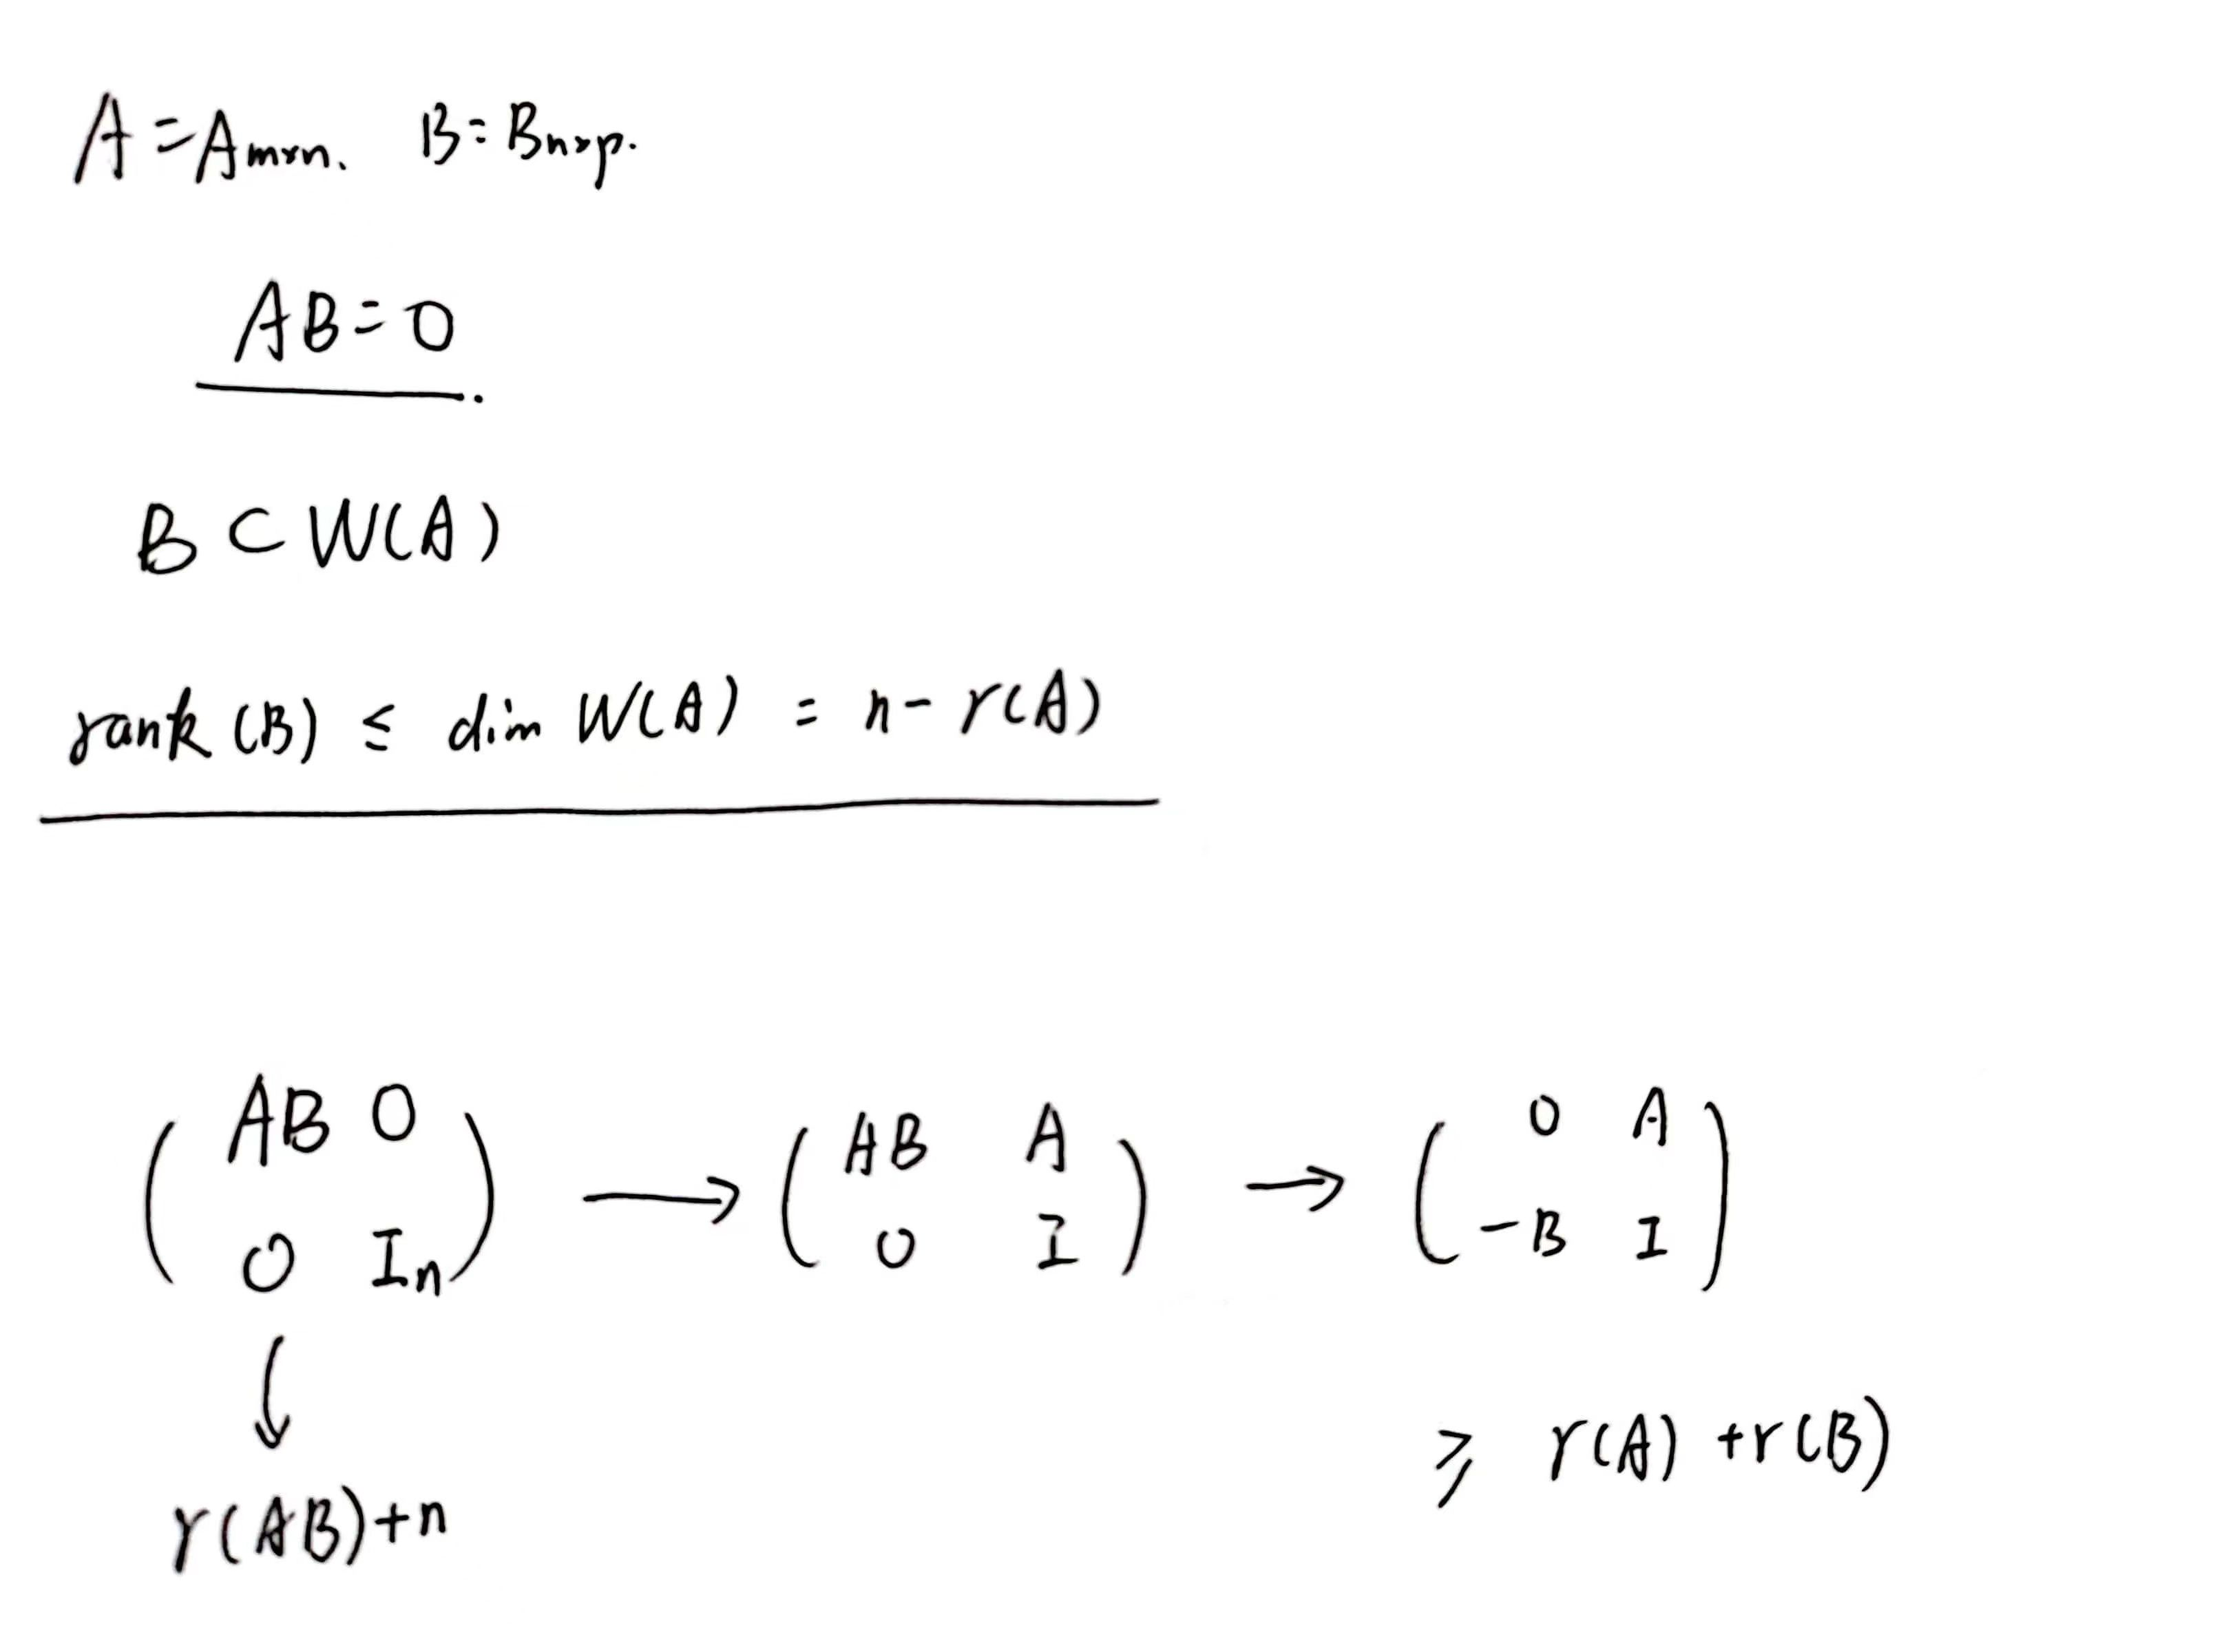 A = A_{m×n}. B = B_{n×p}.
AB = 0
B ⊂ W(A)
rank (B) ≤ dim W(A) = n - r(A)
\begin{pmatrix} AB & 0 \\ 0 & I_n \end{pmatrix} → \begin{pmatrix} AB & A \\ 0 & I \end{pmatrix} → \begin{pmatrix} 0 & A \\ -B & I \end{pmatrix}
↓
≥ r(A) + r(B)
r(AB) + n